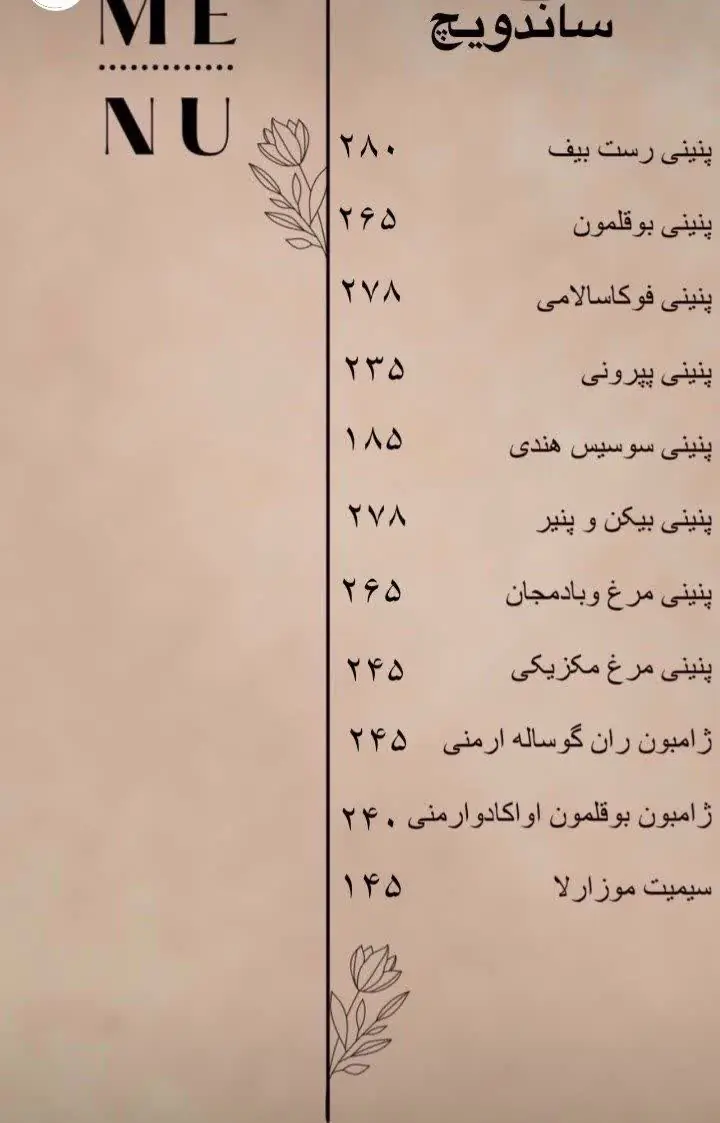 ME
NU
ساندویچ
پنینی رست بیف ۲۸۰
پنینی بوقلمون ۲۶۵
پنینی فوکاسالامی ۲۷۸
پنینی پپرونی ۲۳۵
پنینی سوسیس هندی ۱۸۵
پنینی بیکن و پنیر ۲۷۸
پنینی مرغ وبادمجان ۲۶۵
پنینی مرغ مکزیکی ۲۴۵
ژامبون ران گوساله ارمنی ۲۴۵
ژامبون بوقلمون اواکادوارمنی ۲۴۰
سیمیت موزارلا ۱۴۵